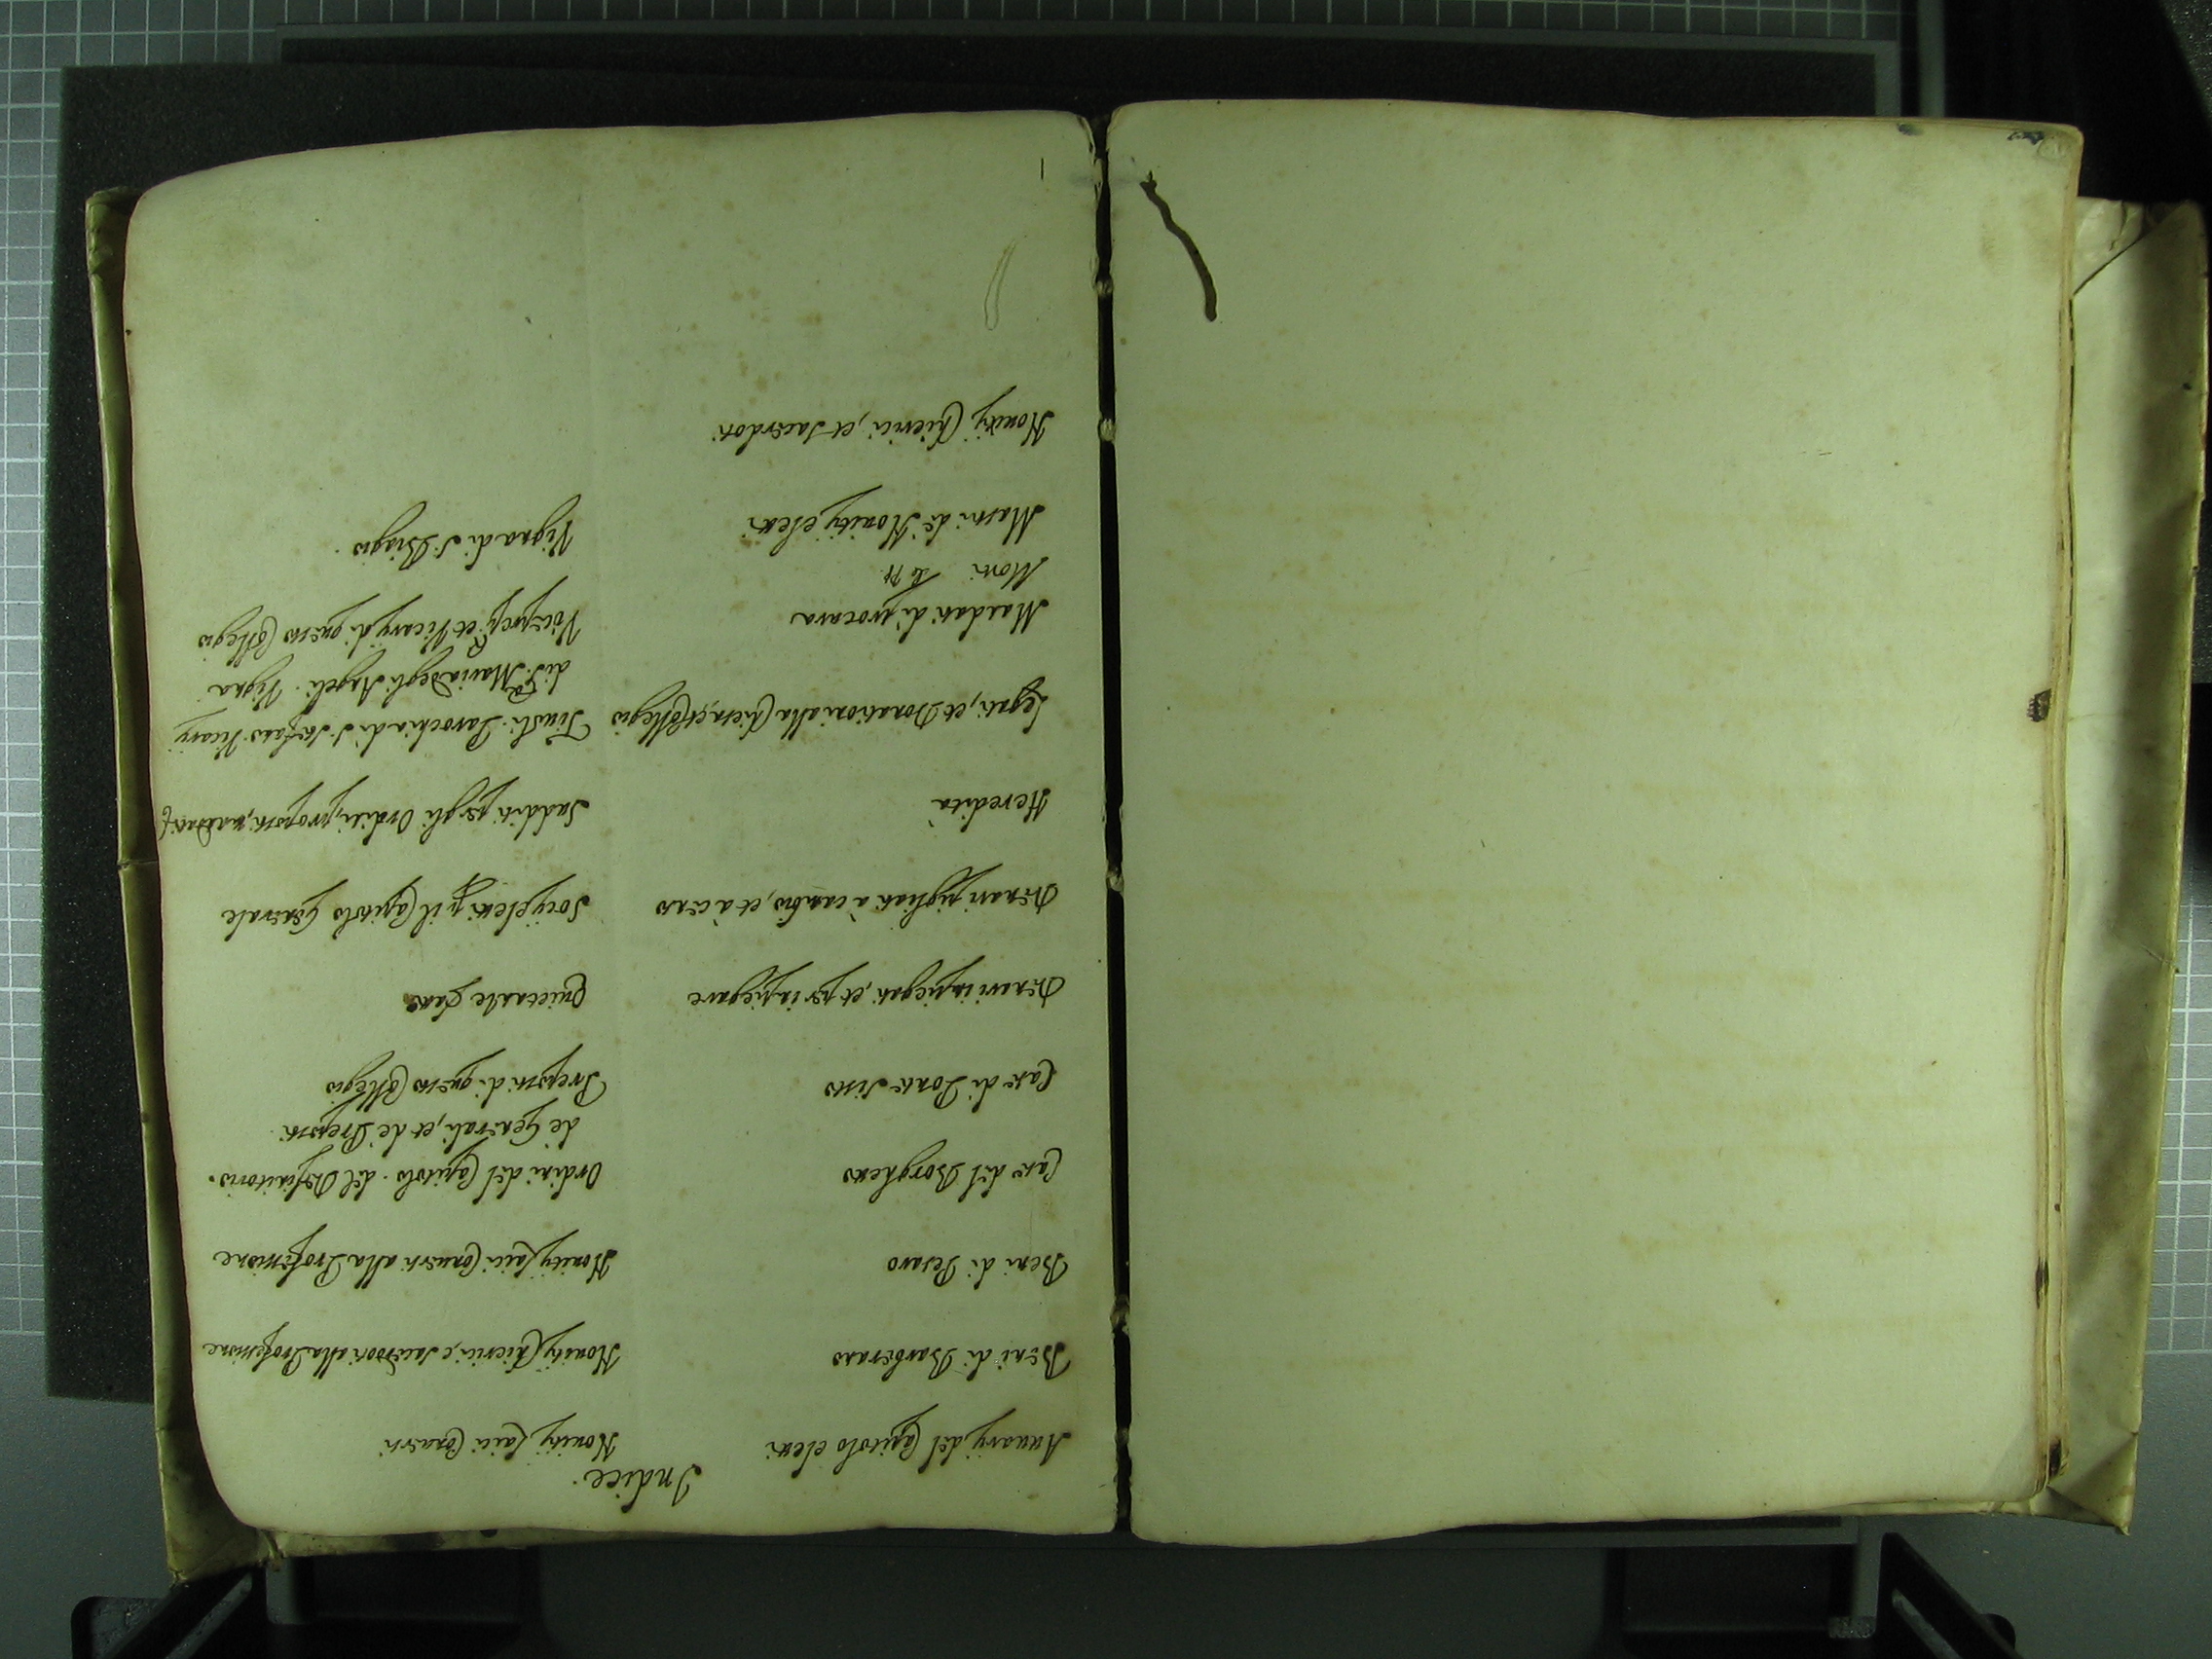 Indice.
Auuarij del Capitolo eletti
Beni di Barberano
Beni di Pesaro
Case del Borghetto
Case di Ponte Sisto
Denari impiegati, et per impiegare
Denari pigliati à cambio, et à censo
Heredità
Legati, et Donationi alla Chiesa, et Collegio
Mandati di procura
Morti
Mastri de Nouitij eletti
Nouitij Chierici, et Sacerdoti
Nouitij Laici Conuersi
Nouitij Chierici, e Sacerdoti alla Professione
Nouitij Laici Conuersi alla Professione
Ordini del Capitolo. del Definitorio.
de Generali, et de Prepositi.
Prepositi di questo Collegio
Quietanze fatte
Socij eletti per il Capitolo Generale
Sudditi per gli Ordini, proposti,
Tiuoli. Parochia di S. Stefano. Vicarij
di S. Maria degli Angeli. Vigna
et Vicarij di questo Collegio
Vigna di S. Biagio.